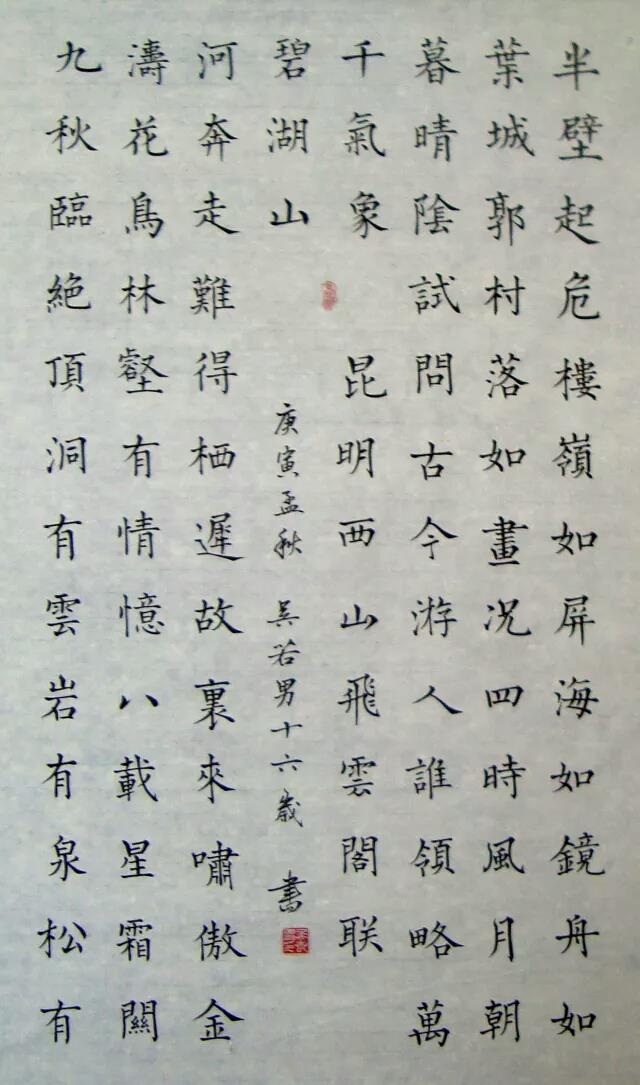 半壁起危樓嶺如屏海如鏡舟如
葉城郭村落如畫况四時風月朝
暮晴陰試問古今游人誰領略萬
千氣象 昆明西山飛雲閣联
九秋臨絕頂洞有雲岩有泉松有
濤花鳥林壑有情憶八載星霜關
河奔走難得栖遲故裏來嘯傲金
碧湖山
庚寅孟秋 吳若男十六歲 書